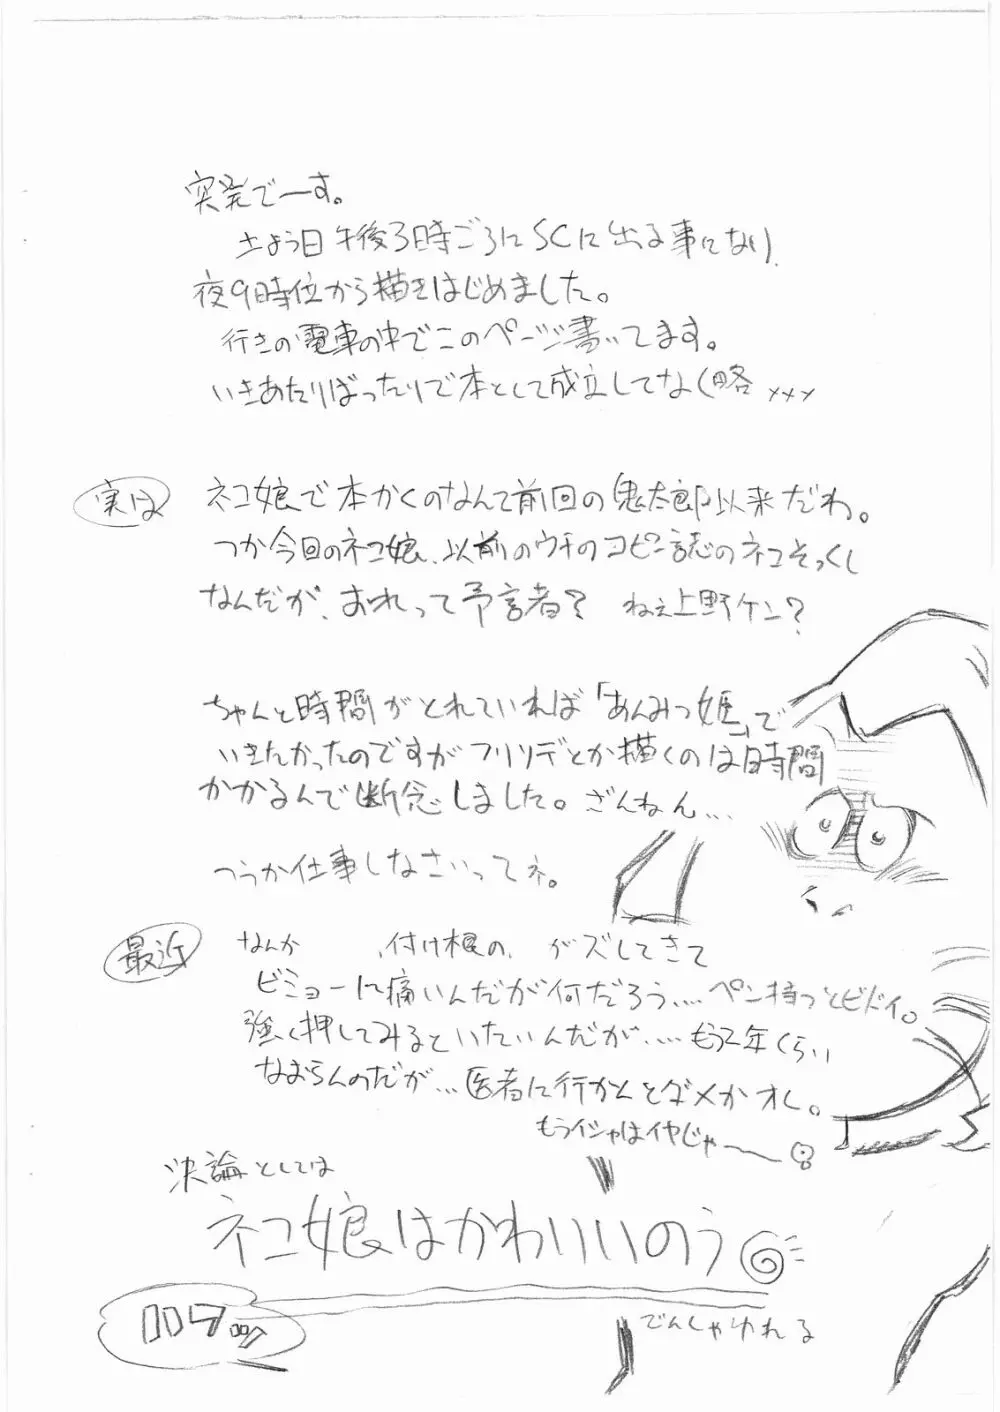 突発でーす。
土よう日午後3時ごろにSCに出る事になり、
夜9時位から描きはじめました。
行きの電車の中でこのページ書いてます。
いきあたりばったりで本として成立してなく(略 xxx
実は
ネコ娘で本かくのなんて前回の鬼太郎以来だわ。
つか今回のネコ娘、以前のウチのコピー誌のネコそっくし
なんだが、おれって予言者? ねえ上野ケン?
ちゃんと時間がとれていれば「あんみつ姫」で
いきたかったのですがフリソデとか描くのは時間
かかるんで断念しました。ざんねん...
つうか仕事しなさいってネ。
最近
なんか 、付け根の、がズレてきて
ビミョーに痛いんだが何だろう.... ペン持つとヒドイ。
強く押してみるといたいんだが..... もう2年くらい
なおらんのだが... 医者に行かんとダメかオレ。
もうイシャはイヤじゃ〜
決論としては
ネコ娘はかわいいのう
でんしゃゆれる